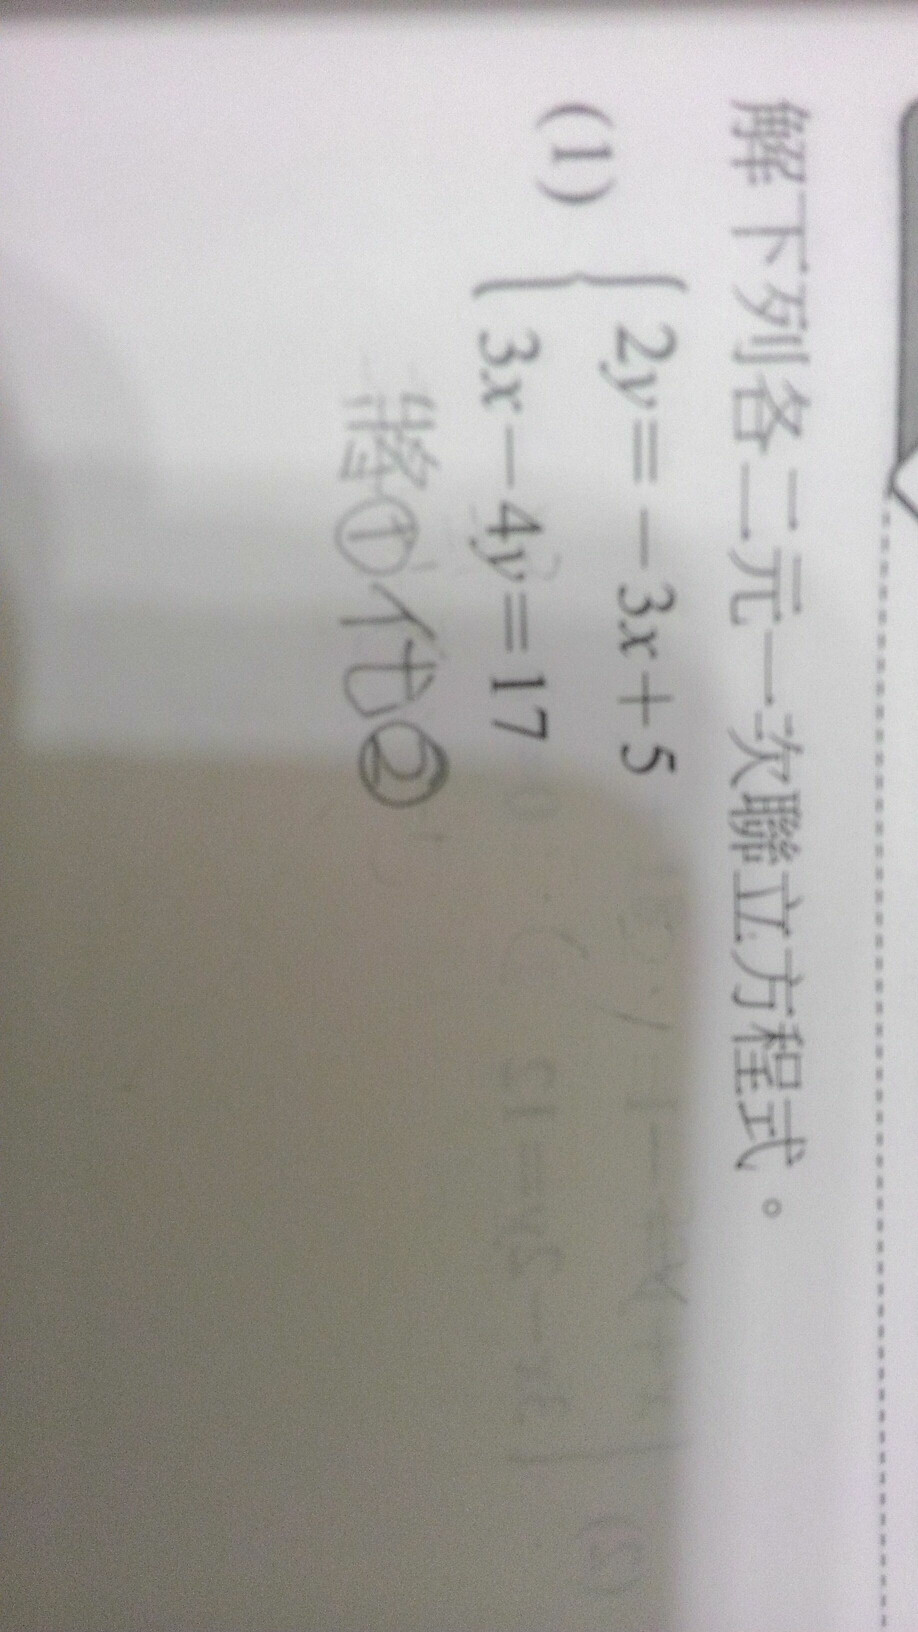 解下列各二元一次聯立方程式。
(1) { 2y = －3x + 5
3x － 4y = 17
將①代②